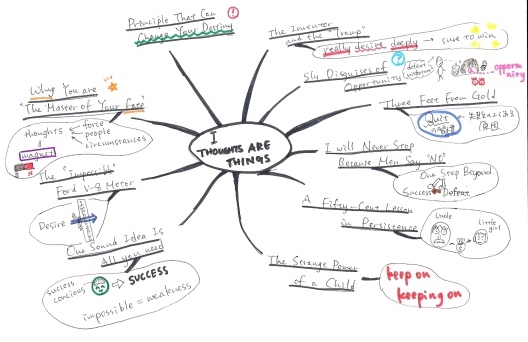 Principle That Can
Change Your Destiny
The Inventor
and the "Tramp"
really desire deeply → sure to win
Sly Disguises of
Opportunity
defeat
opportu
nity
Three Feet From Gold
Quit
I will Never Stop
Because Men Say "NO"
One Step Beyond
Success
Defeat
A Fifty-Cent Lesson
in Persistence
Uncle
little
girl
The Strange Power
of a Child
keep on
keeping on
I
THOUGHTS ARE
THINGS
Why You are
"The Master of Your Fate"
thoughts
force
people
circumstances
magnet
The "Impossible"
Ford V-8 Motor
Desire
One Sound Idea Is
All you need
success
concious
⇒ SUCCESS
impossible = weakness